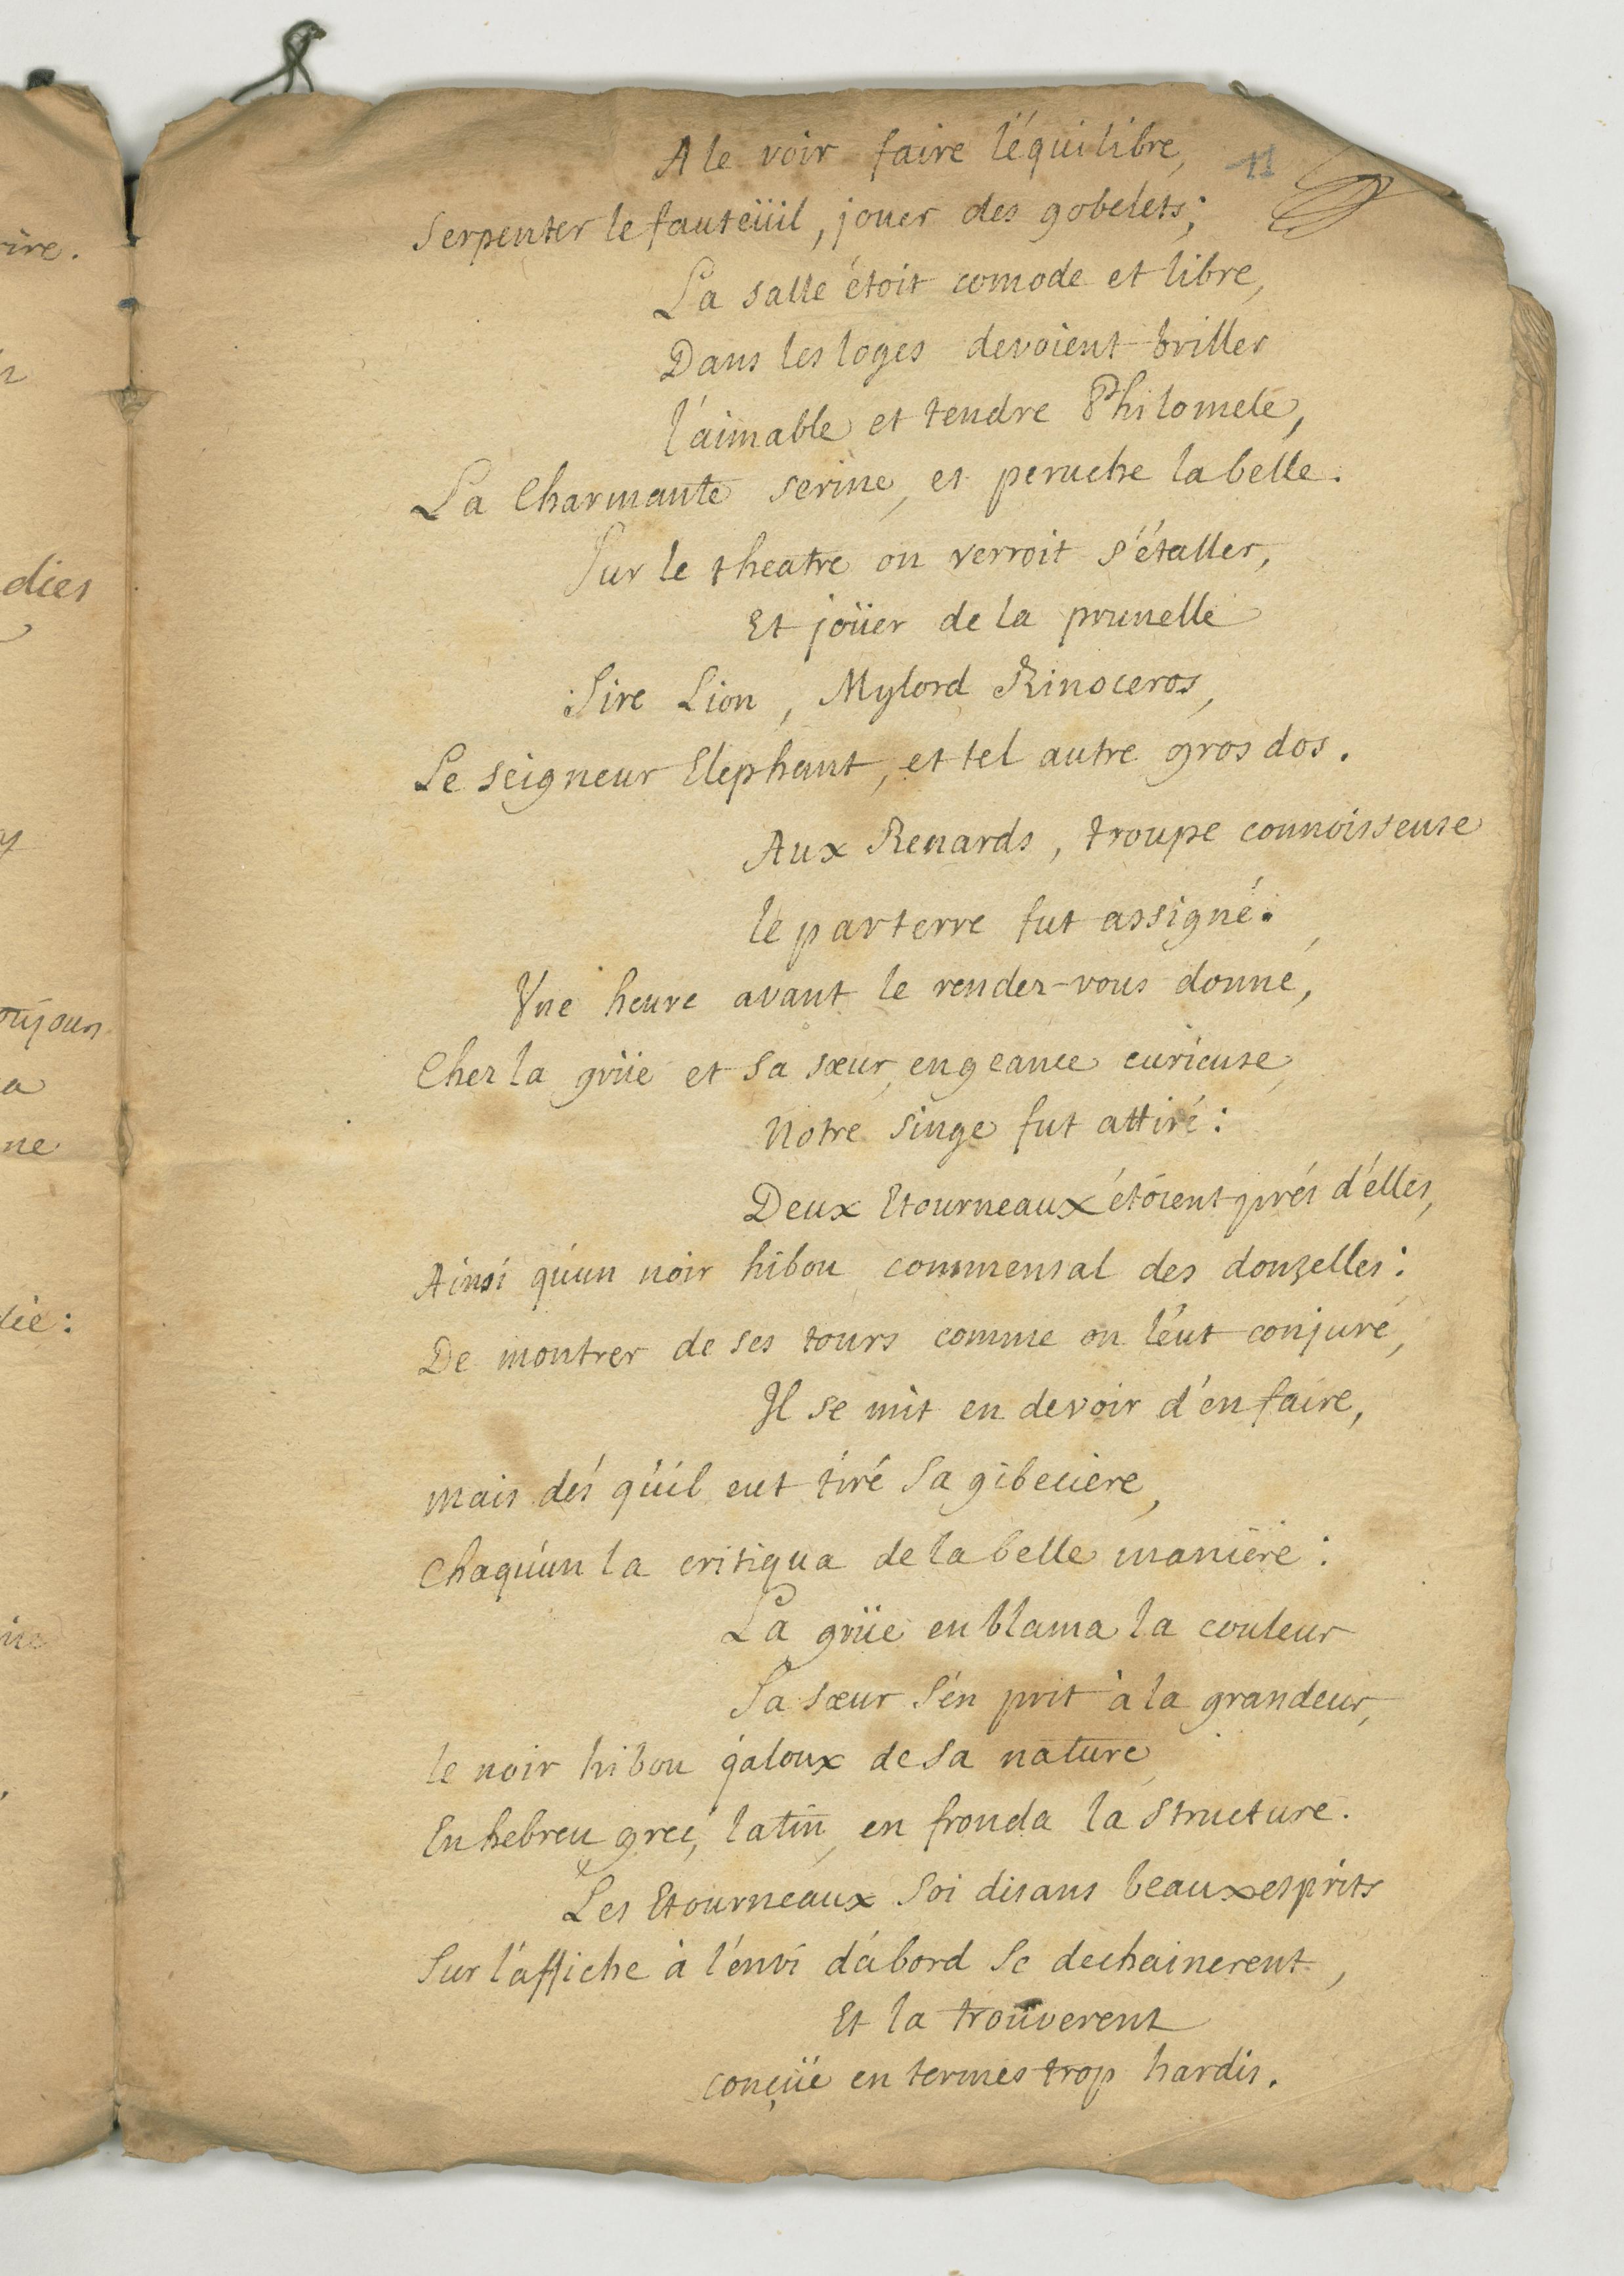 A le voir faire l'équilibre,
11
Serpenter le fauteüil, jouer des gobelets;
La salle étoit comode et libre,
Dans les loges devoient briller
l'aimable et tendre Philomele,
La Charmante serine, et peruche la belle.
Sur le theatre on verroit s'étaller,
Et joüer de la prunelle
Sire Lion, Mylord Rinoceros,
Le seigneur Elephant, et tel autre gros dos.
Aux Renards, troupe connoisseuse
le parterre fut assigné.
Une heure avant le rendez-vous donné,
Chez la grüe et sa sœur, engeance curieuse,
Notre singe fut attiré:
Deux Etourneaux étoient prés d'élles,
Ainsi qu'un noir hibou commensal des donzelles:
De montrer de ses tours comme on l'eut conjuré,
Il se mit en devoir d'en faire,
mais dés qu'il eut tiré sa gibeciere,
Chaqu'un la critiqua de la belle maniere:
La grüe en blama la couleur
Sa sœur s'en prit à la grandeur,
le noir hibou jaloux de sa nature
En hebreu, grec, latin, en fronda la structure.
Les Etourneaux soi disans beaux esprits
Sur l'affiche à l'envi d'abord se dechainerent,
Et la trouverent
conçüe en termes trop hardis.
ire.
dies
oujours
a
ne
die: